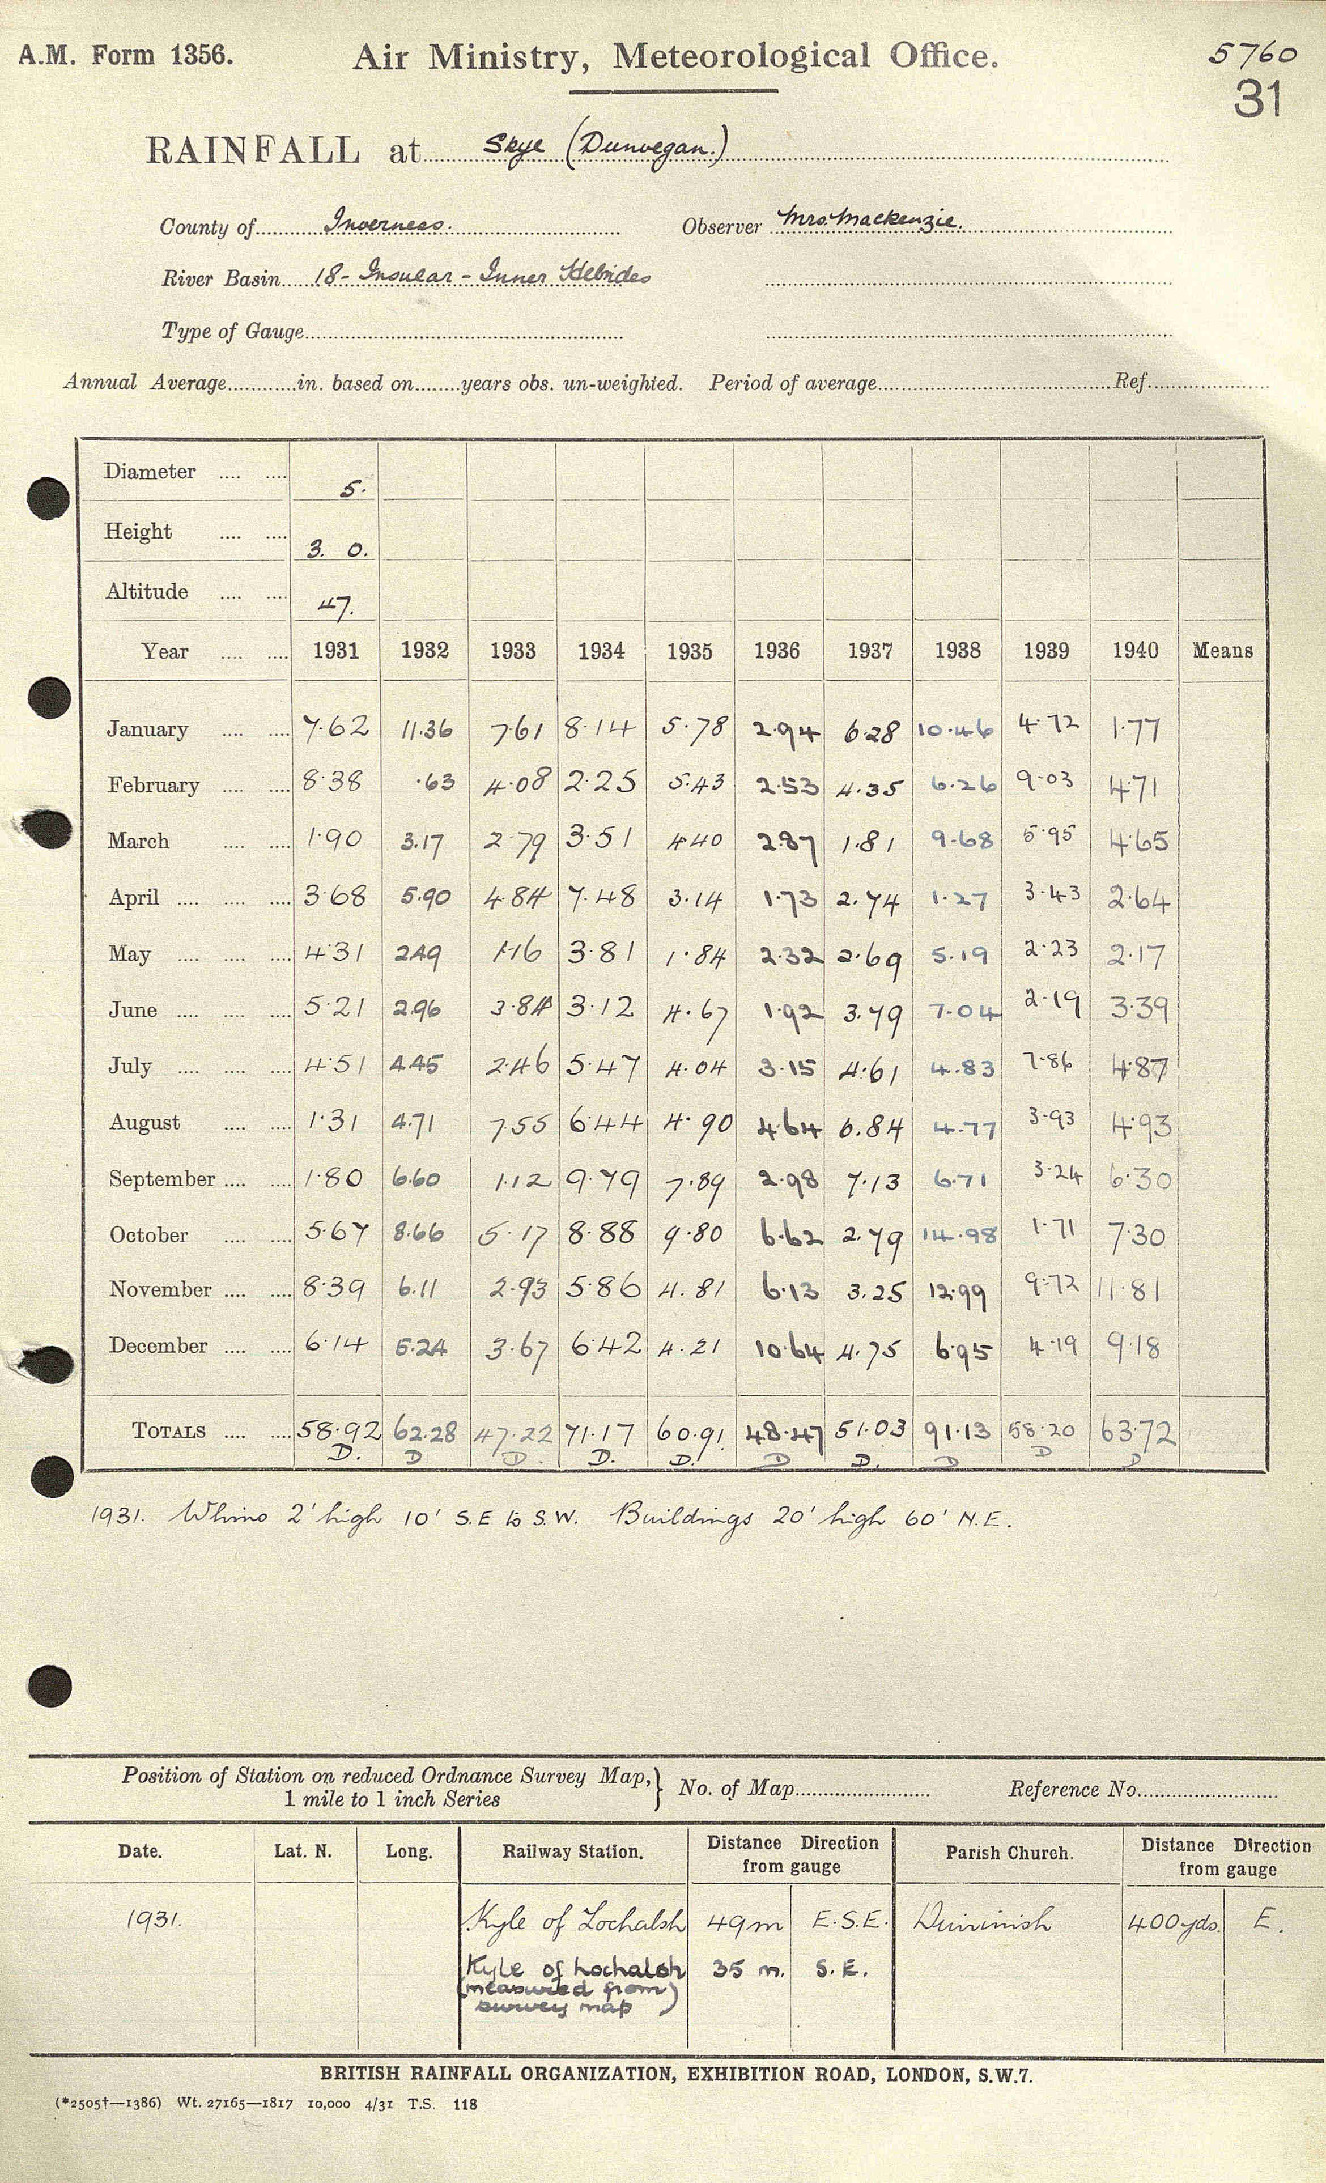 A.M. Form 1356. Air Ministry, Meteorological Office. 5760
31
RAINFALL at Skye (Dunvegan.)
County of Inverness. Observer Mrs. Mackenzie.
River Basin 18 - Insular - Inner Hebrides
Type of Gauge
Annual Average in. based on years obs. un-weighted. Period of average Ref.
Diameter 5.
Height 3. 0.
Altitude 47.
Year 1931 1932 1933 1934 1935 1936 1937 1938 1939 1940 Means
January 7.62 11.36 7.61 8.14 5.78 2.94 6.28 10.46 4.72 1.77
February 8.38 .63 4.08 2.25 5.43 2.53 4.35 6.26 9.03 4.71
March 1.90 3.17 2.79 3.51 4.40 2.87 1.81 9.68 5.95 4.65
April 3.68 5.90 4.84 7.48 3.14 1.73 2.74 1.27 3.43 2.64
May 4.31 2.49 1.16 3.81 1.84 2.32 2.69 5.19 2.23 2.17
June 5.21 2.96 3.84 3.12 4.67 1.92 3.79 7.04 2.19 3.39
July 4.51 4.45 2.46 5.47 4.04 3.15 4.61 4.83 7.86 4.87
August 1.31 4.71 7.55 6.44 4.90 4.64 6.84 4.77 3.93 4.93
September 1.80 6.60 1.12 9.79 7.89 2.98 7.13 6.71 3.24 6.30
October 5.67 8.66 5.17 8.88 9.80 6.62 2.79 14.98 1.71 7.30
November 8.39 6.11 2.93 5.86 4.81 6.13 3.25 12.99 9.72 11.81
December 6.14 5.24 3.67 6.42 4.21 10.64 4.75 6.95 4.19 9.18
TOTALS 58.92 62.28 47.22 71.17 60.91 48.47 51.03 91.13 58.20 63.72
D. D D. D. D. D D. D D D
1931. Whins 2' high 10' S.E to S.W. Buildings 20' high 60' N.E.
Position of Station on reduced Ordnance Survey Map, } No. of Map Reference No.
1 mile to 1 inch Series
Date. Lat. N. Long. Railway Station. Distance Direction from gauge Parish Church. Distance Direction from gauge
1931. Kyle of Lochalsh 49m E.S.E. Duirinish 400yds. E.
Kyle of Lochalsh 35 m. S.E.
(measured from
survey map)
BRITISH RAINFALL ORGANIZATION, EXHIBITION ROAD, LONDON, S.W.7.
(*2505†—1386) Wt. 27165—1817 10,000 4/31 T.S. 118